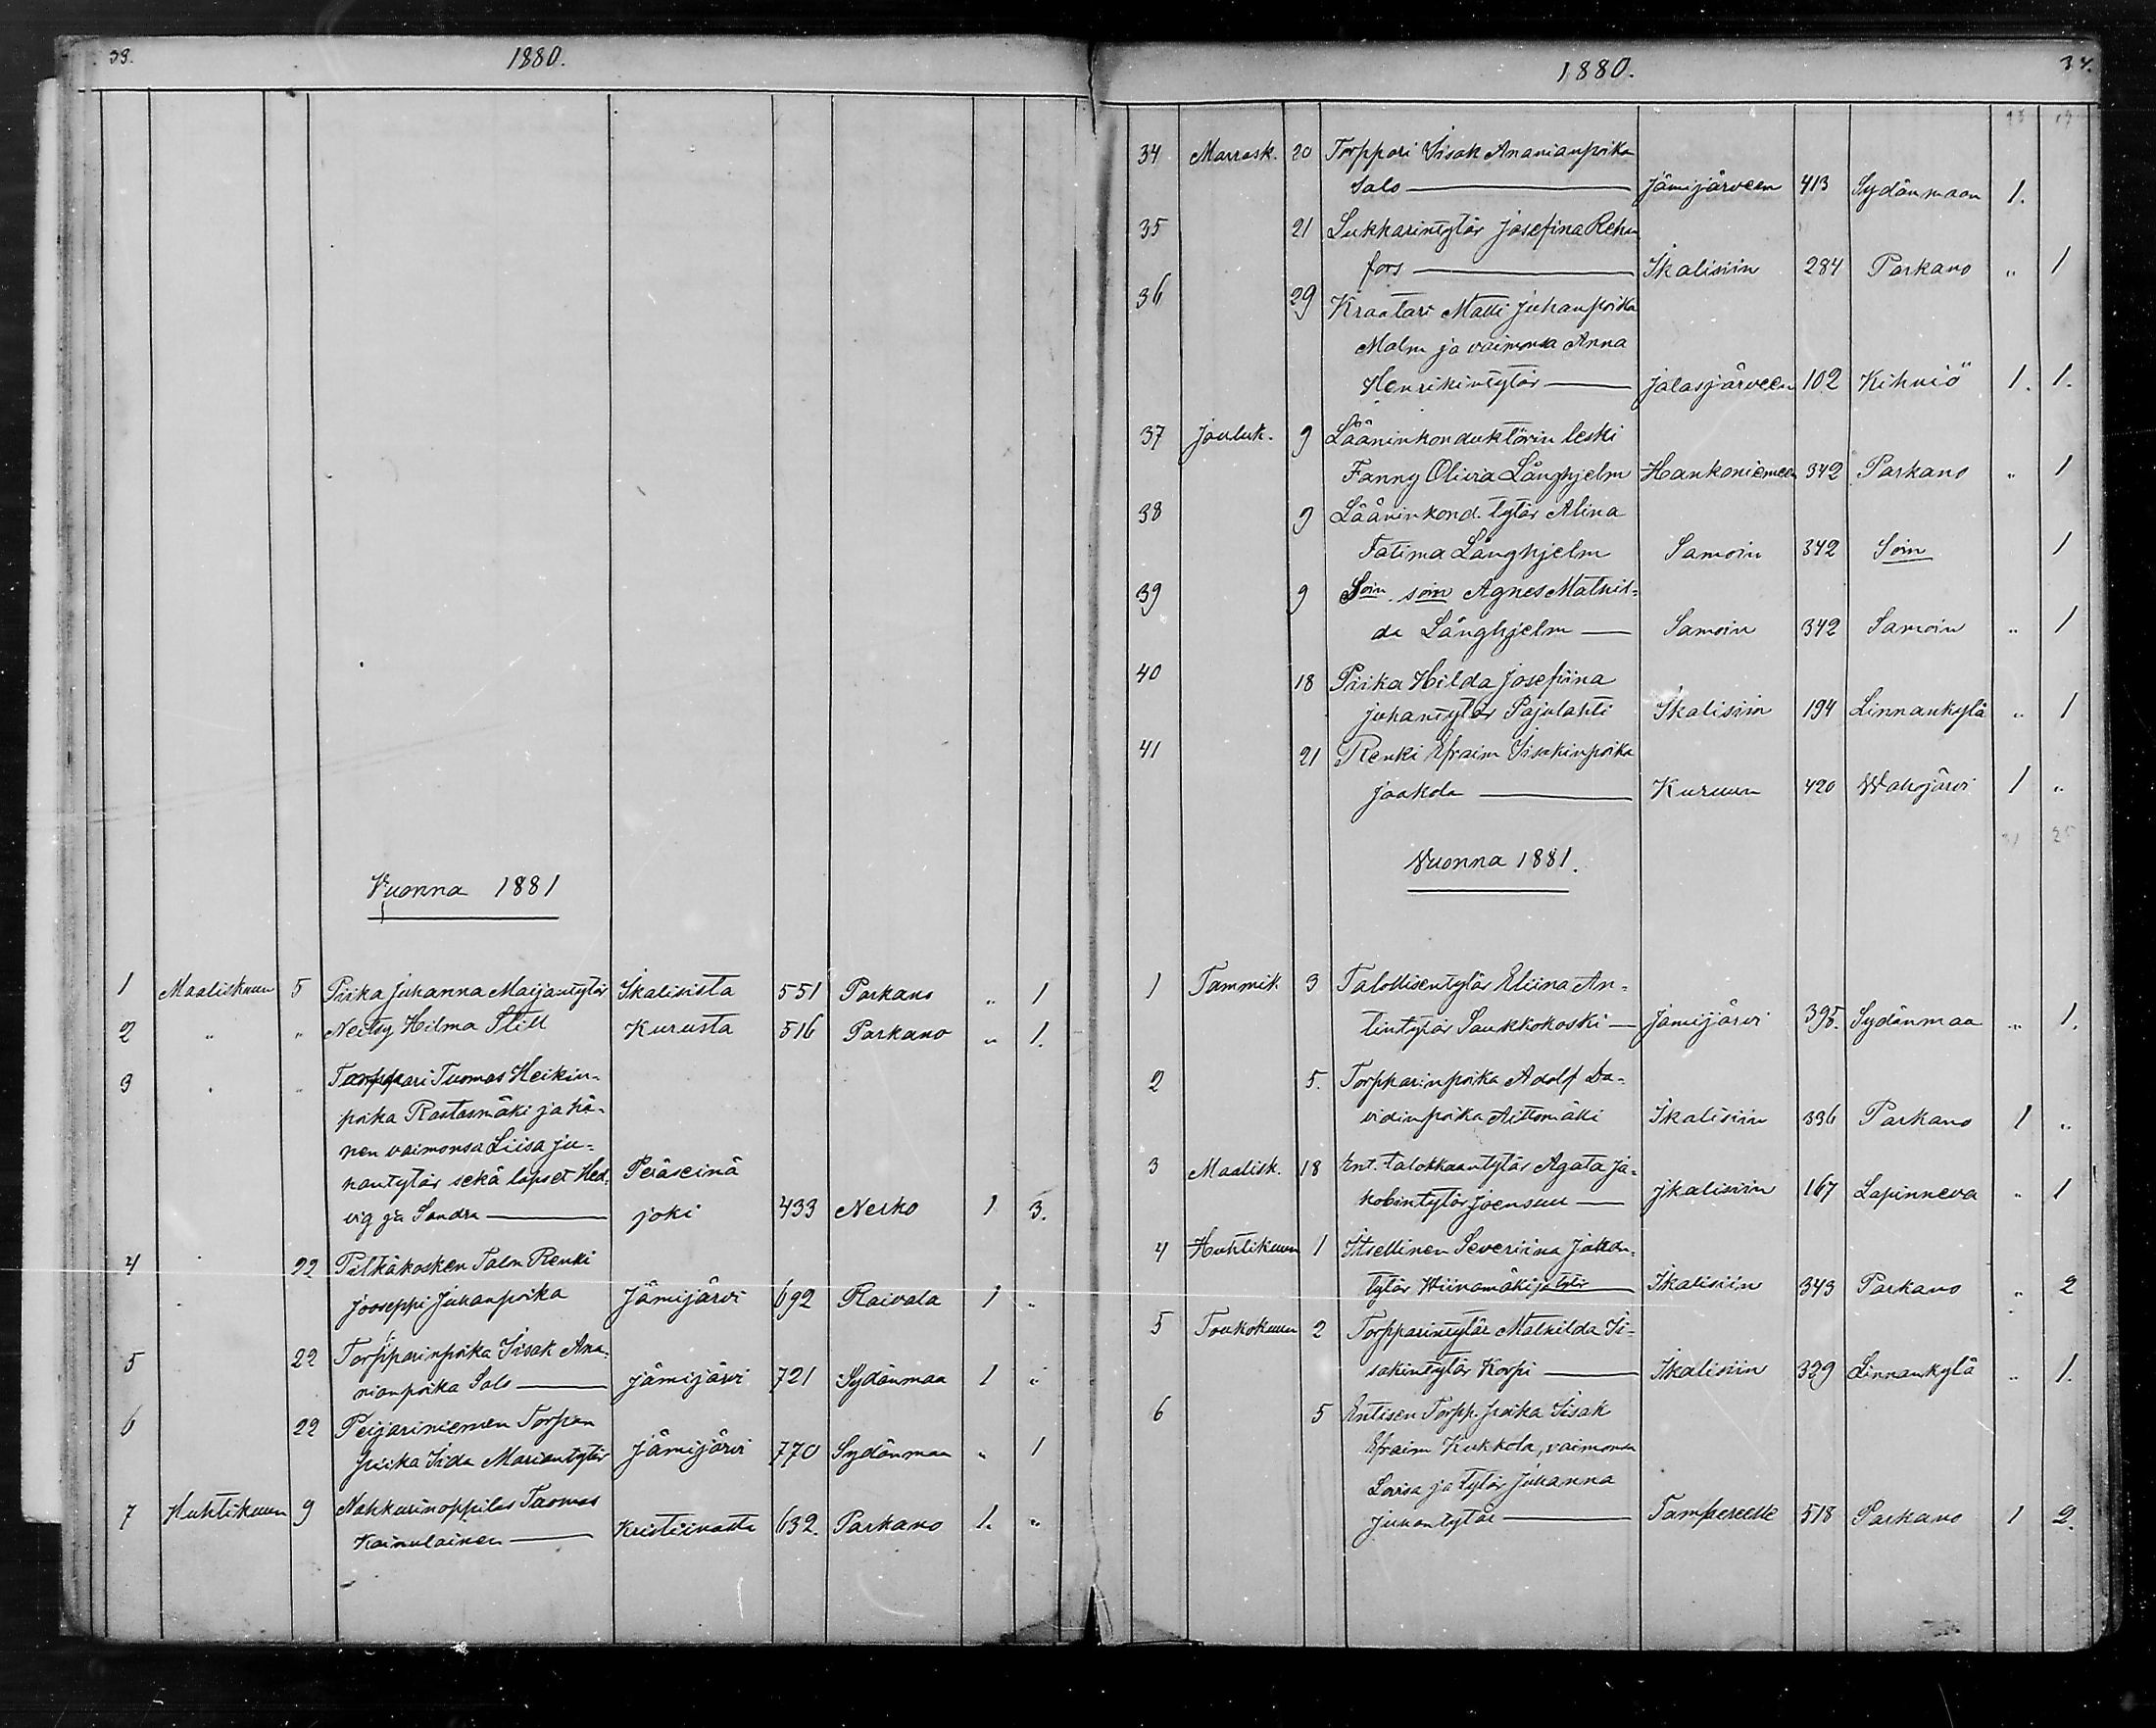 33.
1880.
Vuonna 1881
1 Maaliskuun 5 Piika Juhanna Maijantytär Ikalisista 551 Parkano „ 1
2 „ „ Neitsy Hilma Still Kurusta 516 Parkano „ 1.
3 „ „ Torppari Tuomas Heikin-
poika Rastasmäki ja hä-
nen vaimonsa Liisa Ju-
hantytär sekä lapset Hed- Peräseinä
vig ja Sandra joki 433 Nerko 1 3.
4 „ 22 Pitkäkosken Talon Renki
Jooseppi Juhanpoika Jämijärvi 692 Raivala 1 „
5 22 Torpparinpoika Iisak Ana-
nianpoika Salo Jämijärvi 721 Sydänmaa 1 „
6 22 Peijariniemen Torpan
piika Iida Mariantytär Jämijärvi 770 Sydänmaa „ 1
7 Huhtikuun 9 Nahkurinoppilas Tuomas
Kainulainen Kristiinasta 632. Parkano 1. „
1880.
34.
34 Marrask. 20 Torppari Iisak Ananianpoika
Salo Jämijärveen 413 Sydänmaan 1.
35 21 Lukkarintytär Josefina Rehn
fors Ikalisiin 284 Parkano „ 1
36 29 Kraatari Matti Juhanpoika
Malm ja vaimonsa Anna
Henrikintytär Jalasjärveen 102 Kihniö 1. 1.
37 Jouluk. 9 Lääninkonduktörin leski
Fanny Olivia Långhjelm Hankoniemeen 342 Parkano „ 1
38 9 Lääninkond. tytär Alina
Fatima Långhjelm Samoin 342 Soin 1
39 9 Soin. soin Agnes Mathil-
da Långhjelm Samoin 342 Samoin „ 1
40 18 Piika Hilda Josefiina
Juhantytär Pajulahti Ikalisiin 194 Linnankylä „ 1
41 21 Renki Efraim Iisakinpoika
Jaakola Kuruun 420 Wahojärvi 1 „
Vuonna 1881.
1 Tammik. 3 Talollisentytär Eliina An-
tintytär Saukkokoski Jämijärvi 395. Sydänmaa „ 1.
2 5. Torpparinpoika Adolf Da-
vidinpoika Aittomäki Ikalisiin 336 Parkano 1 „
3 Maalisk. 18 Ent. talokkaantytär Agata Ja-
kobintytär Joensuu Ikalisiin 167 Lapinneva „ 1
4 Huhtikuun 1 Itsellinen Severiina Juhan-
tytär Hiivamäki ja tytär Ikalisiin 343 Parkano „ 2
5 Toukokuun 2 Torpparintytär Mathilda Ii-
sakintytär Korpi Ikalisiin 329 Linnankylä „ 1.
6 5 Entisen Torpp. poika Iisak
Efraim Kukkola, vaimonsa
Lovisa ja tytär Juhanna
Juhantytär Tampereelle 518 Parkano 1 2.